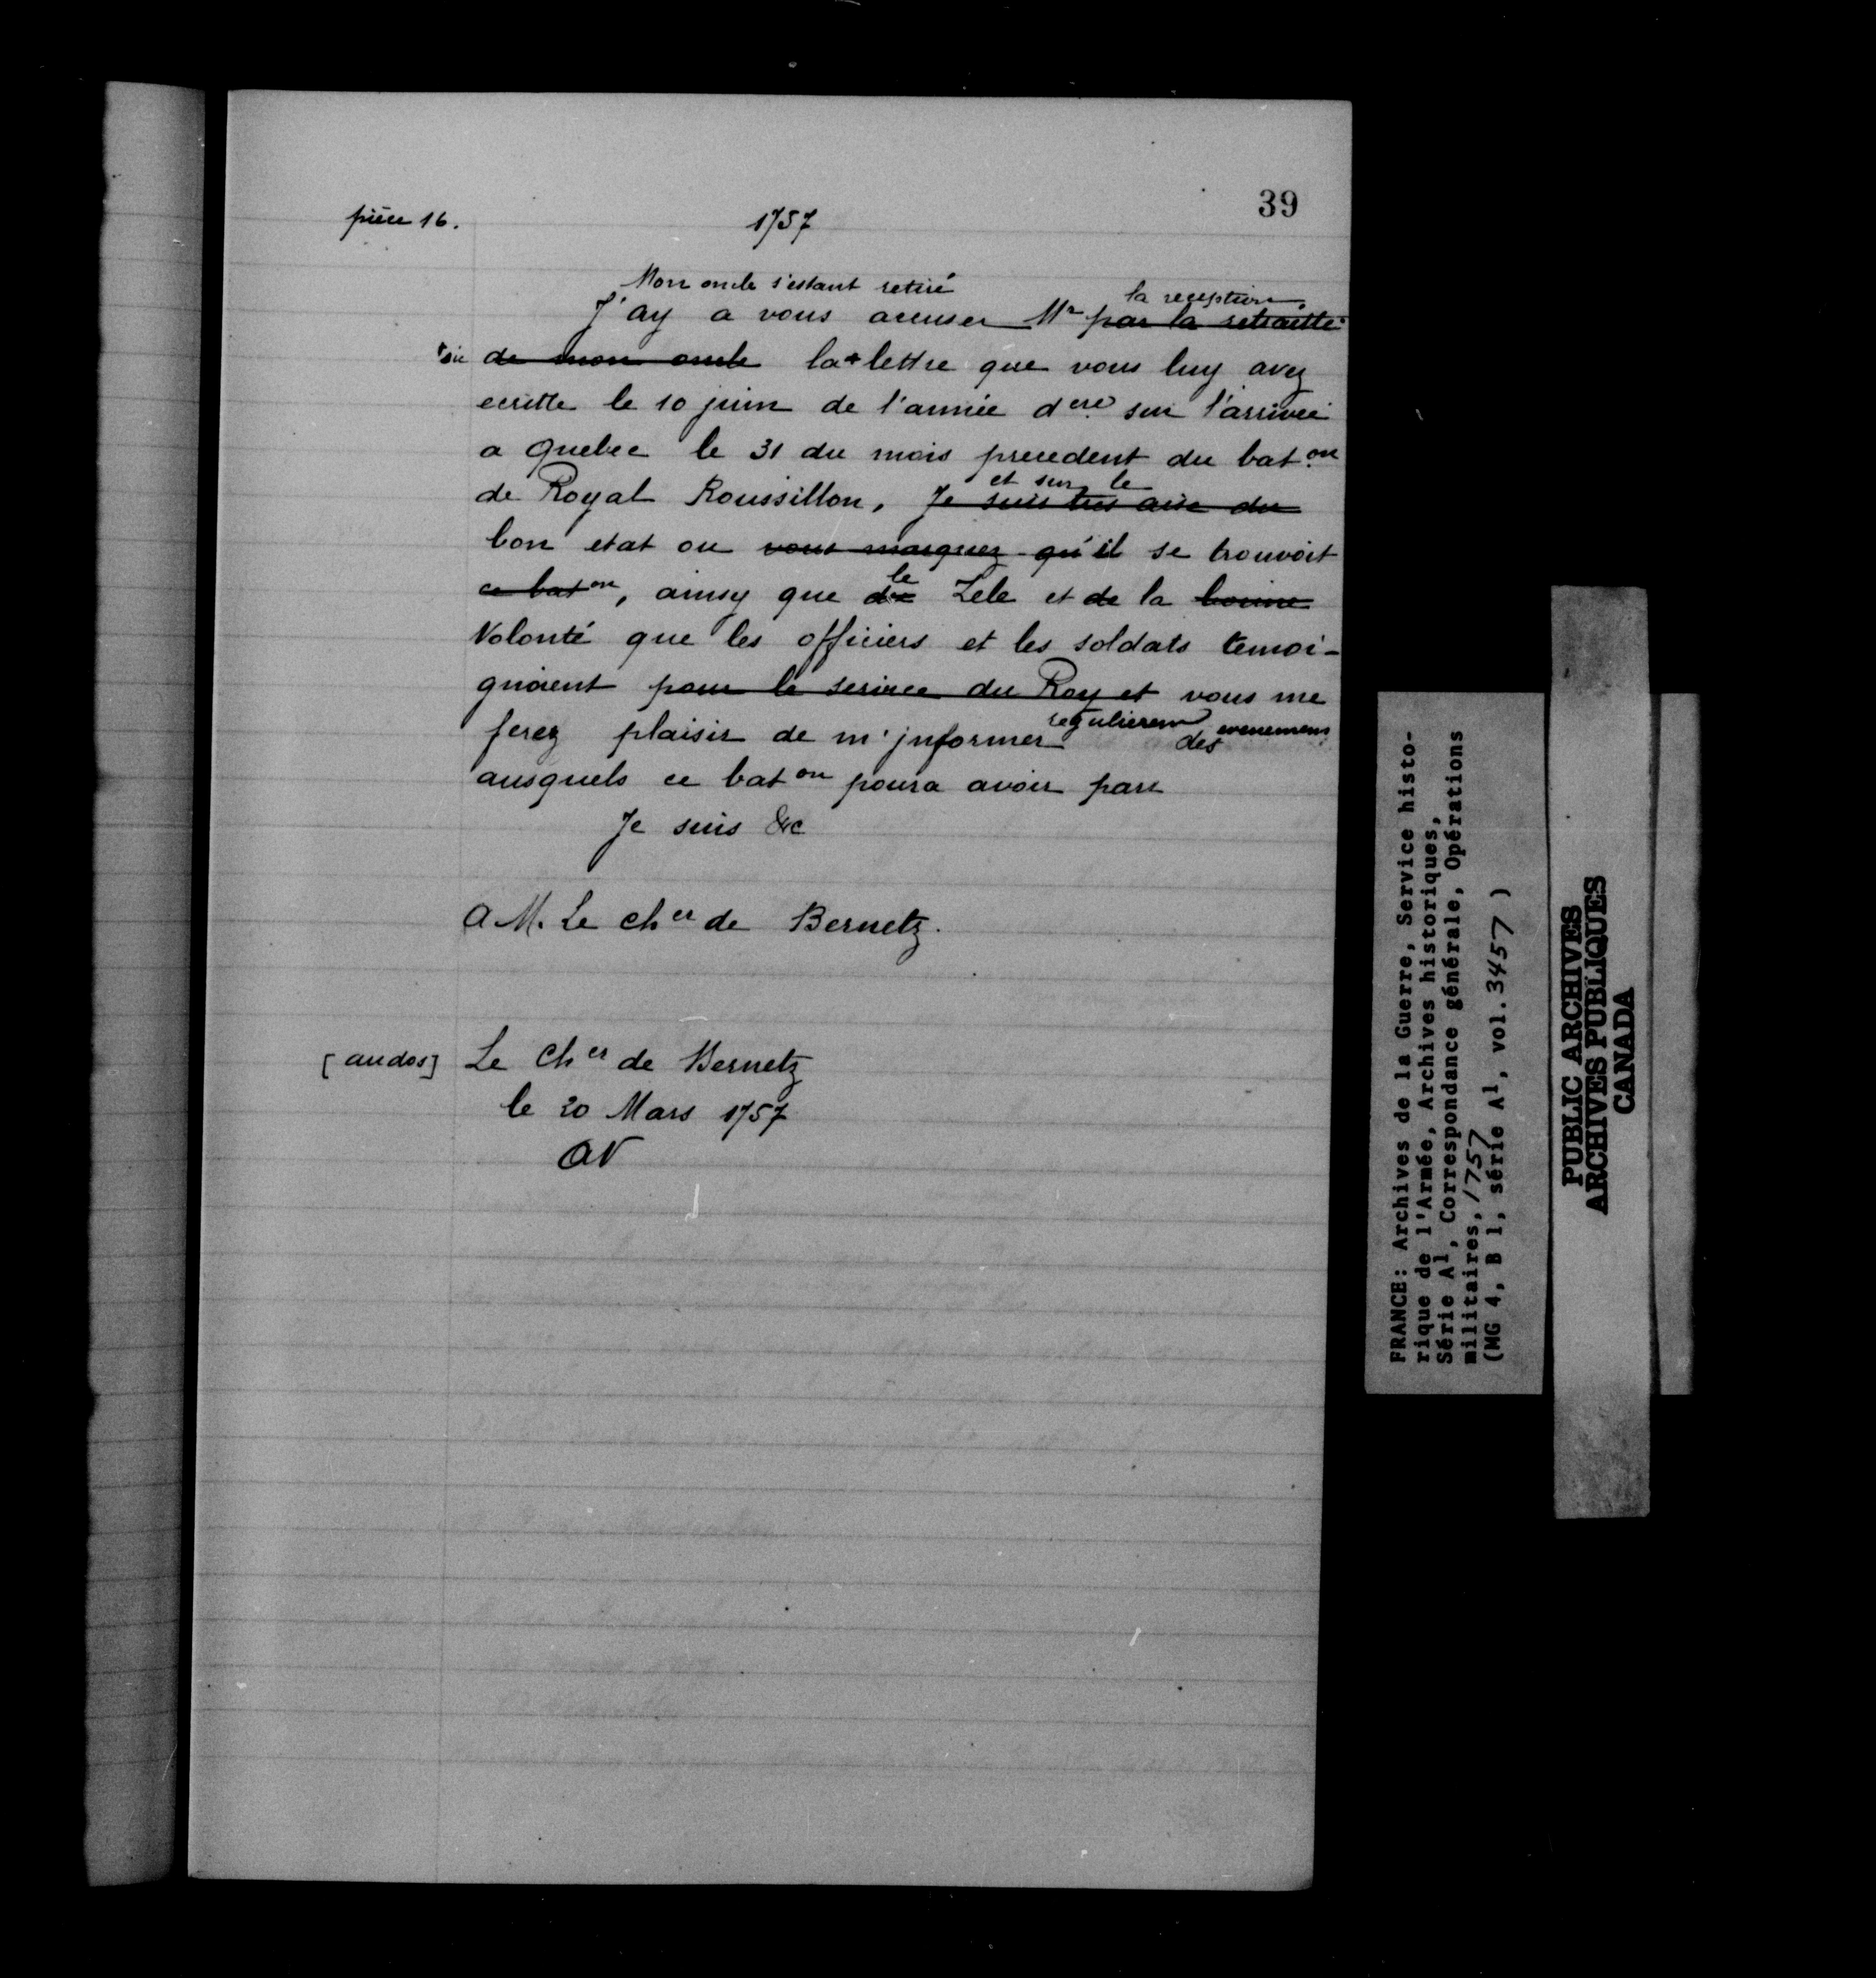 39
pièce 16.
1757
Mon oncle s'estant retiré
la reception
J'ay a vous accuser Mr par la retraitte
*sic de mon oncle la* lettre que vous luy avez
ecritte le 10 juin de l'année dere sur l'arrivée
a Quebec le 31 du mois precedent du baton
et sur le
de Royal Roussillon, Je suis tres aise du
bon etat ou vous marquez qu'il se trouvoit
le
ce baton, ainsy que du Zele et de la bonne
Volonté que les officiers et les soldats temoi-
gnoient pour le service du Roy et vous me
regulierem evenemens
ferez plaisir de m'jnformer des
ausquels ce baton poura avoir part
Je suis &c
A M. Le cher de Bernetz.
[au dos] Le Cher de Bernetz
le 20 Mars 1757
AN
FRANCE: Archives de la Guerre, Service histo-
rique de l'Armée, Archives historiques,
Série A1, Correspondance générale, Opérations
militaires, 1757
(MG 4, B 1, série A1, vol. 3457 )
PUBLIC ARCHIVES
ARCHIVES PUBLIQUES
CANADA